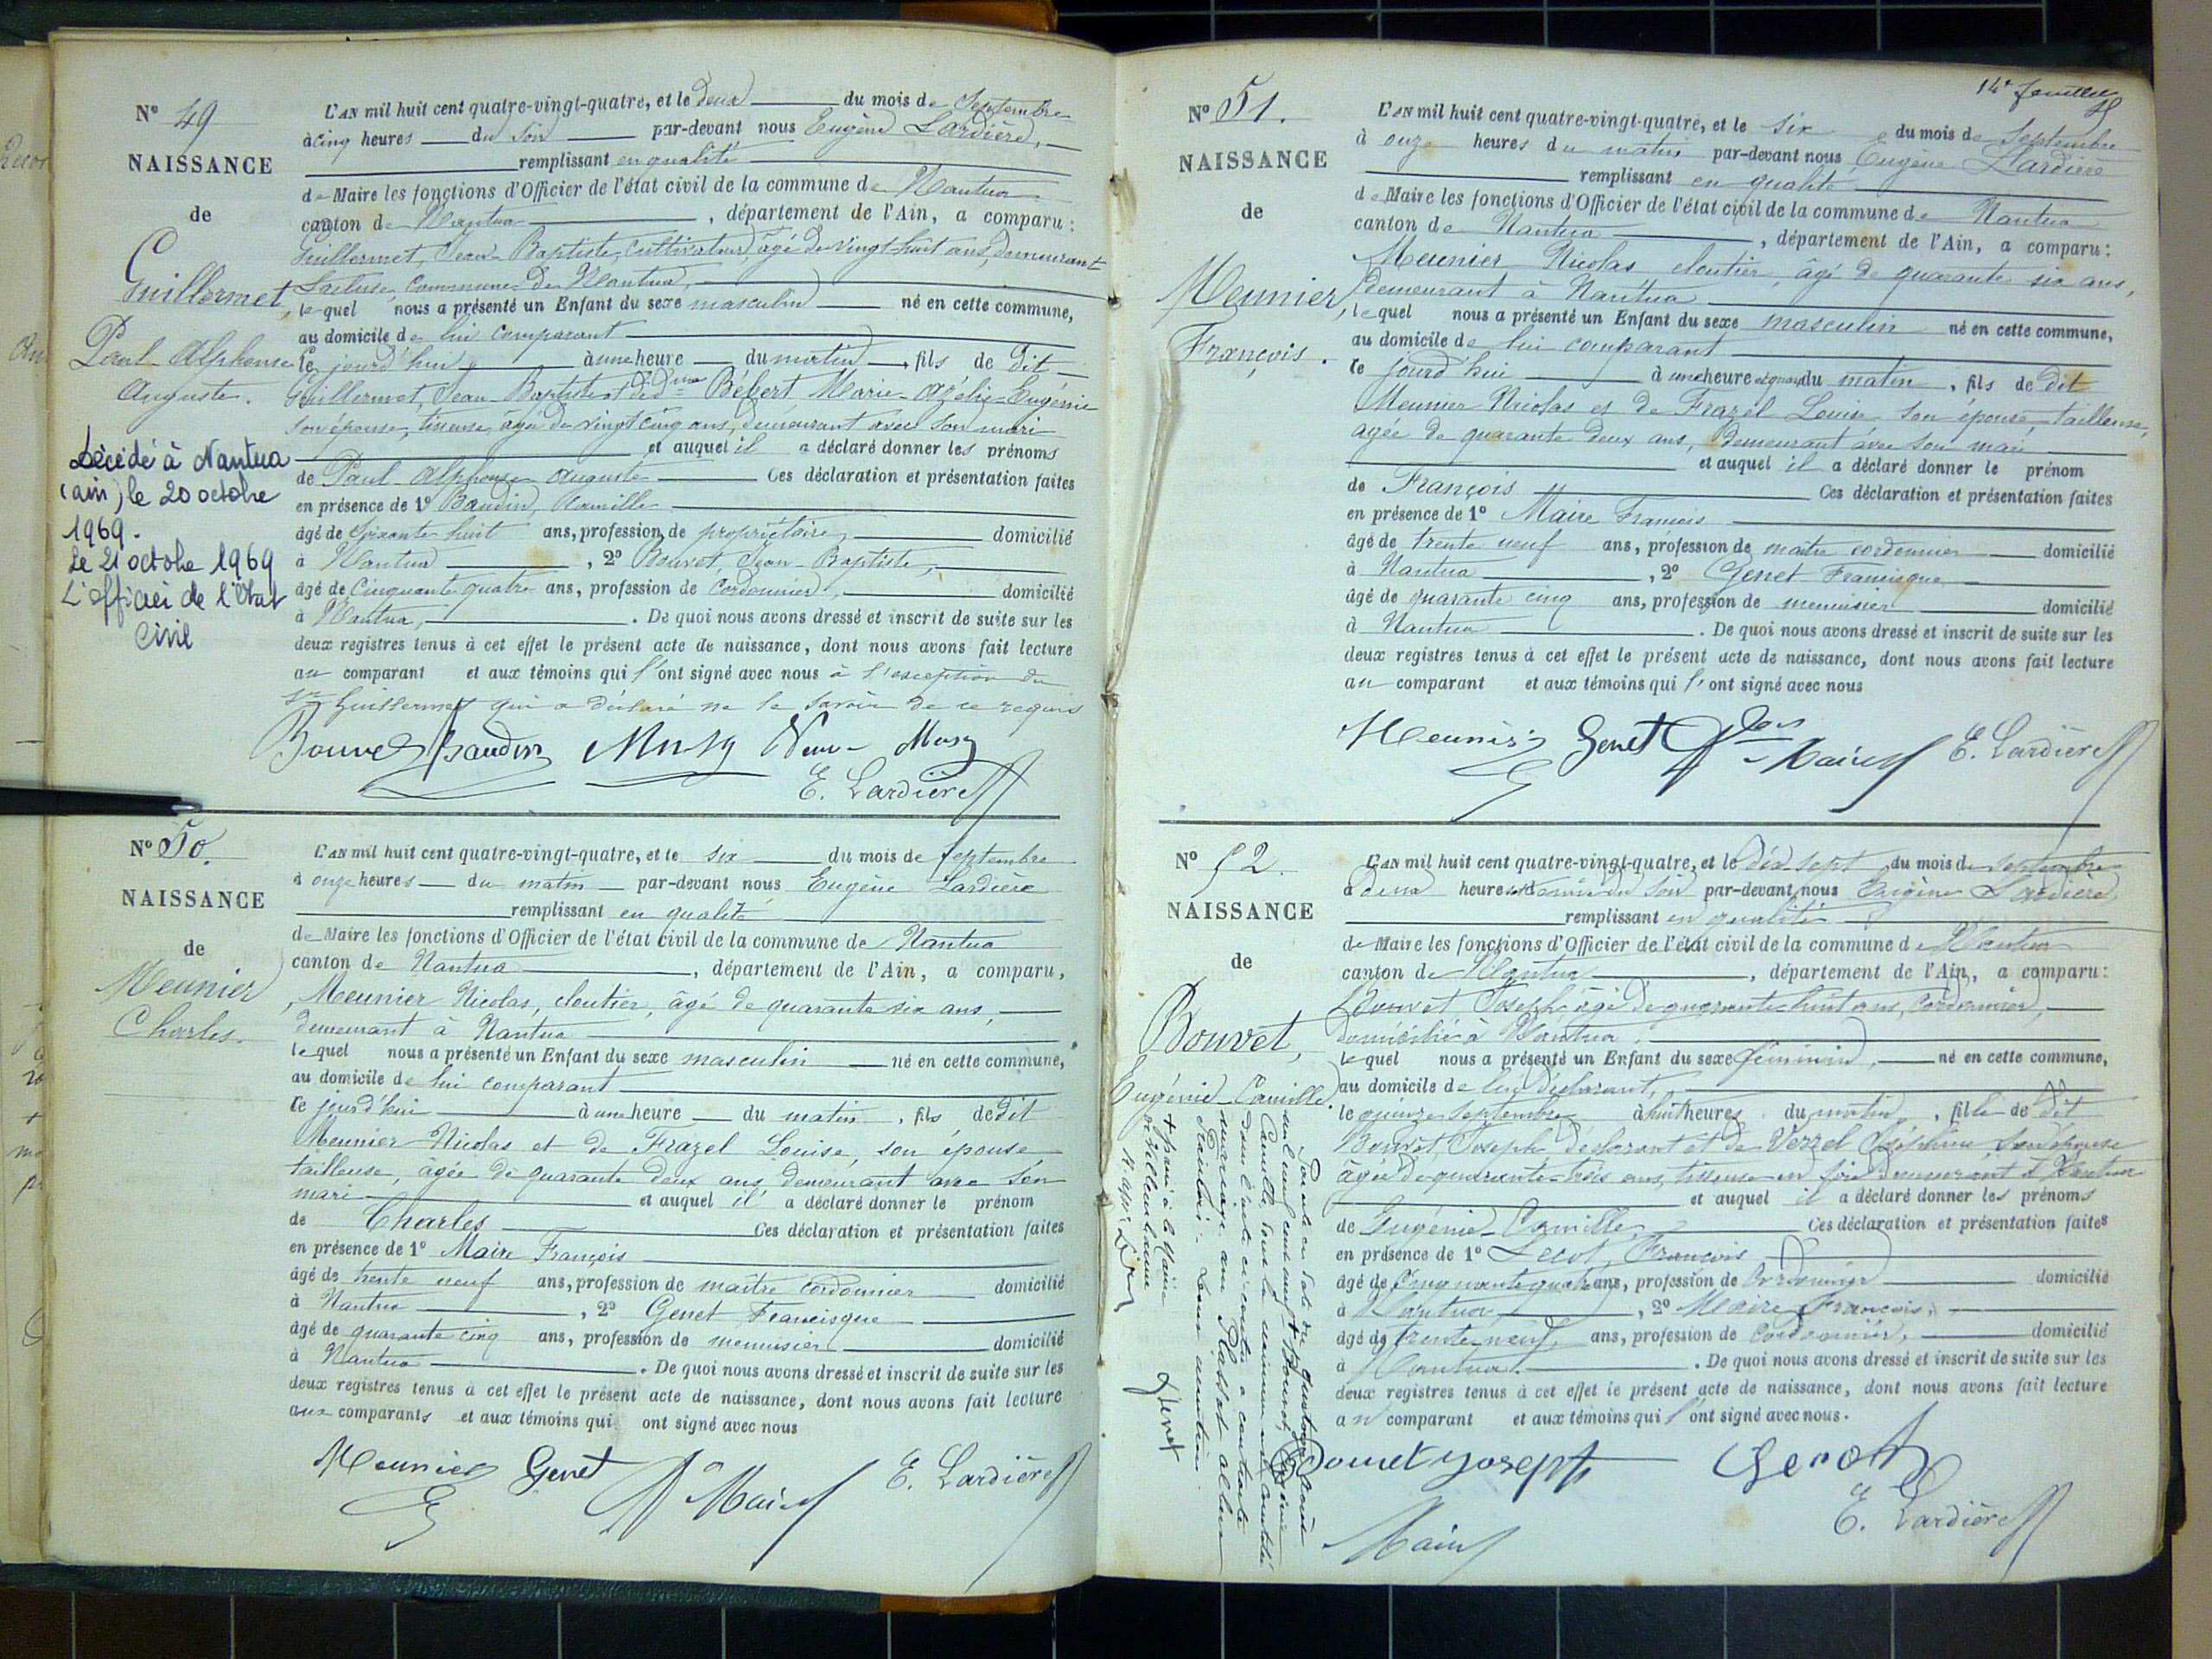 N° 49
NAISSANCE
de
Guillermet,
Paul Alphonse
Auguste.
Décédé à Nantua
(ain) le 20 octobre
1969.
Le 21 octobre 1969
L'officier de l'Etat
Civil
L'AN mil huit cent quatre-vingt-quatre, et le deux du mois de Septembre
à cinq heures du soir par-devant nous Eugène Lardière,
remplissant en qualité
de Maire les fonctions d'Officier de l'état civil de la commune de Nantua
canton de Nantua, département de l'Ain, a comparu :
Guillermet, Jean-Baptiste, cultivateur, âgé de vingt huit ans, demeurant
commune de Nantua,
lequel nous a présenté un Enfant du sexe masculin né en cette commune,
au domicile de lui comparant
ce jourd'hui à une heure du matin, fils de dit
Guillermet, Jean-Baptiste et de dme Bébert Marie-Azélie-Eugénie
son épouse, tisseuse, âgée de vingt cinq ans, demeurant avec son mari
et auquel il a déclaré donner les prénoms
de Paul Alphonse Auguste Ces déclaration et présentation faites
en présence de 1° Baudin, Camille
âgé de soixante huit ans, profession de propriétaire, domicilié
à Nantua, 2° Bouvet, Jean-Baptiste,
âgé de Cinquante quatre ans, profession de Cordonnier, domicilié
à Nantua, . De quoi nous avons dressé et inscrit de suite sur les
deux registres tenus à cet effet le présent acte de naissance, dont nous avons fait lecture
au comparant et aux témoins qui l'ont signé avec nous à l'exception du
Sr Guillermet qui a déclaré ne le savoir de ce requis
Bouvet Baudin
E. Lardière
N° 50.
NAISSANCE
de
Meunier
Charles.
L'AN mil huit cent quatre-vingt-quatre, et le six du mois de septembre
à onze heures du matin par-devant nous Eugène Lardière
remplissant en qualité
de Maire les fonctions d'Officier de l'état civil de la commune de Nantua
canton de Nantua, département de l'Ain, a comparu,
Meunier Nicolas, cloutier, âgé de quarante six ans,
demeurant à Nantua
lequel nous a présenté un Enfant du sexe masculin né en cette commune,
au domicile de lui comparant
ce jourd'hui à une heure du matin, fils de dit
Meunier Nicolas et de Frazel Louise, son épouse
tailleuse, âgée de quarante deux ans, demeurant avec son
mari et auquel il a déclaré donner le prénom
de Charles Ces déclaration et présentation faites
en présence de 1° Maire François
âgé de trente neuf ans, profession de maître cordonnier domicilié
à Nantua, 2° Genet Francisque
âgé de quarante cinq ans, profession de menuisier domicilié
à Nantua. De quoi nous avons dressé et inscrit de suite sur les
deux registres tenus à cet effet le présent acte de naissance, dont nous avons fait lecture
aux comparants et aux témoins qui ont signé avec nous
Meunier Genet Maire E. Lardière
14e feuillet
N° 51.
NAISSANCE
de
Meunier,
François.
L'AN mil huit cent quatre-vingt-quatre, et le six du mois de Septembre
à onze heures du matin par-devant nous Eugène Lardière
remplissant en qualité
de Maire les fonctions d'Officier de l'état civil de la commune de Nantua
canton de Nantua, département de l'Ain, a comparu :
Meunier Nicolas cloutier, âgé de quarante six ans,
demeurant à Nantua
lequel nous a présenté un Enfant du sexe masculin né en cette commune,
au domicile de lui comparant
ce jourd'hui à une heure et quart du matin, fils de dit
Meunier Nicolas et de Frazel Louise son épouse, tailleuse,
agée de quarante deux ans, demeurant avec son mari
et auquel il a déclaré donner le prénom
de François Ces déclaration et présentation faites
en présence de 1° Maire François
âgé de trente neuf ans, profession de maître cordonnier domicilié
à Nantua, 2° Genet Francisque
âgé de quarante cinq ans, profession de menuisier domicilié
à Nantua. De quoi nous avons dressé et inscrit de suite sur les
deux registres tenus à cet effet le présent acte de naissance, dont nous avons fait lecture
au comparant et aux témoins qui l'ont signé avec nous
Meunier Genet Maire E. Lardière
N° 52.
NAISSANCE
de
Bouvet,
Eugénie Camille.
L'AN mil huit cent quatre-vingt-quatre, et le dix-sept du mois de Septembre
à deux heures et demie du soir par-devant nous Eugène Lardière
remplissant en qualité
de Maire les fonctions d'Officier de l'état civil de la commune de Nantua
canton de Nantua, département de l'Ain, a comparu :
Bouvet Joseph, âgé de quarante-huit ans, cordonnier,
domicilié à Nantua,
lequel nous a présenté un Enfant du sexe féminin, né en cette commune,
au domicile de lui déclarant,
le quinze Septembre à huit heures du matin, fille de dit
Bouvet, Joseph déclarant et de Verzel Joséphine son épouse
âgée de quarante-trois ans, tisseuse en soie demeurant à Nantua
et auquel il a déclaré donner les prénoms
de Eugénie-Camille, Ces déclaration et présentation faites
en présence de 1° François
âgé de Cinquante quatre ans, profession de Cordonnier domicilié
à Nantua, 2° Maire François,
âgé de trente-neuf ans, profession de Cordonnier, domicilié
à Nantua. De quoi nous avons dressé et inscrit de suite sur les
deux registres tenus à cet effet le présent acte de naissance, dont nous avons fait lecture
au comparant et aux témoins qui l'ont signé avec nous.
Bouvet Joseph
Maire
E. Lardière
Par acte en date du
mil neuf cent neuf Bouvet Eugénie
Camille
dans l'acte ci-contre a contracté
mariage avec
+ passé à la Mairie
de Villeurbanne
Genet